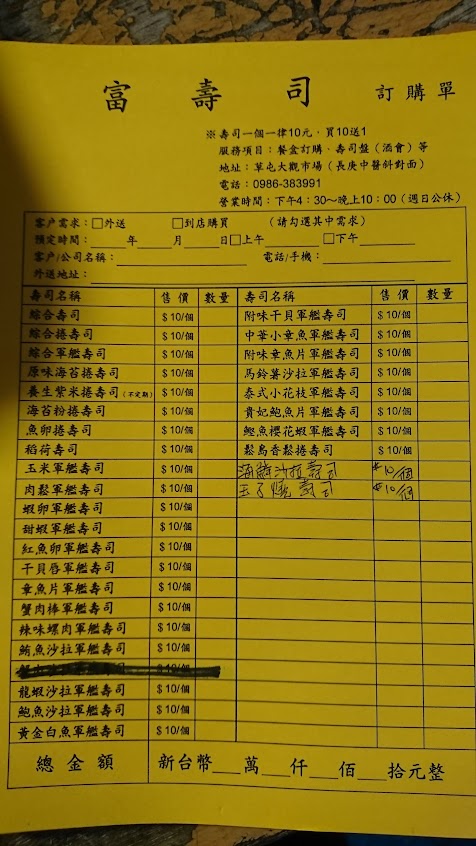 富壽司 訂購單
※壽司一個一律10元．買10送1
服務項目：餐盒訂購．壽司盤（酒會）等
地址：草屯大觀市場（長庚中醫斜對面）
電話：0986-383991
營業時間：下午4：30～晚上10：00（週日公休）
客户需求：□外送 □到店購買 （請勾選其中需求）
預定時間：___年___月___日□上午______ □下午______
客户/公司名稱：______ 電話/手機：______
外送地址：______
壽司名稱 售價 數量 壽司名稱 售價 數量
綜合壽司 $10/個 附味干貝軍艦壽司 $10/個
綜合捲壽司 $10/個 中華小章魚軍艦壽司 $10/個
綜合軍艦壽司 $10/個 附味章魚片軍艦壽司 $10/個
原味海苔捲壽司 $10/個 馬鈴薯沙拉軍艦壽司 $10/個
養生紫米捲壽司（不定期） $10/個 泰式小花枝軍艦壽司 $10/個
海苔粉捲壽司 $10/個 貴妃鮑魚片軍艦壽司 $10/個
魚卵捲壽司 $10/個 鰹魚櫻花蝦軍艦壽司 $10/個
稻荷壽司 $10/個 鬆島香鬆捲壽司 $10/個
玉米軍艦壽司 $10/個 海鮮沙拉壽司 $10/個
肉鬆軍艦壽司 $10/個 玉子燒壽司 $10/個
蝦卵軍艦壽司 $10/個
甜蝦軍艦壽司 $10/個
紅魚卵軍艦壽司 $10/個
干貝唇軍艦壽司 $10/個
章魚片軍艦壽司 $10/個
蟹肉棒軍艦壽司 $10/個
辣味螺肉軍艦壽司 $10/個
鮪魚沙拉軍艦壽司 $10/個
龍蝦沙拉軍艦壽司 $10/個
鮑魚沙拉軍艦壽司 $10/個
黃金白魚軍艦壽司 $10/個
總金額 新台幣___萬___仟___佰___拾元整